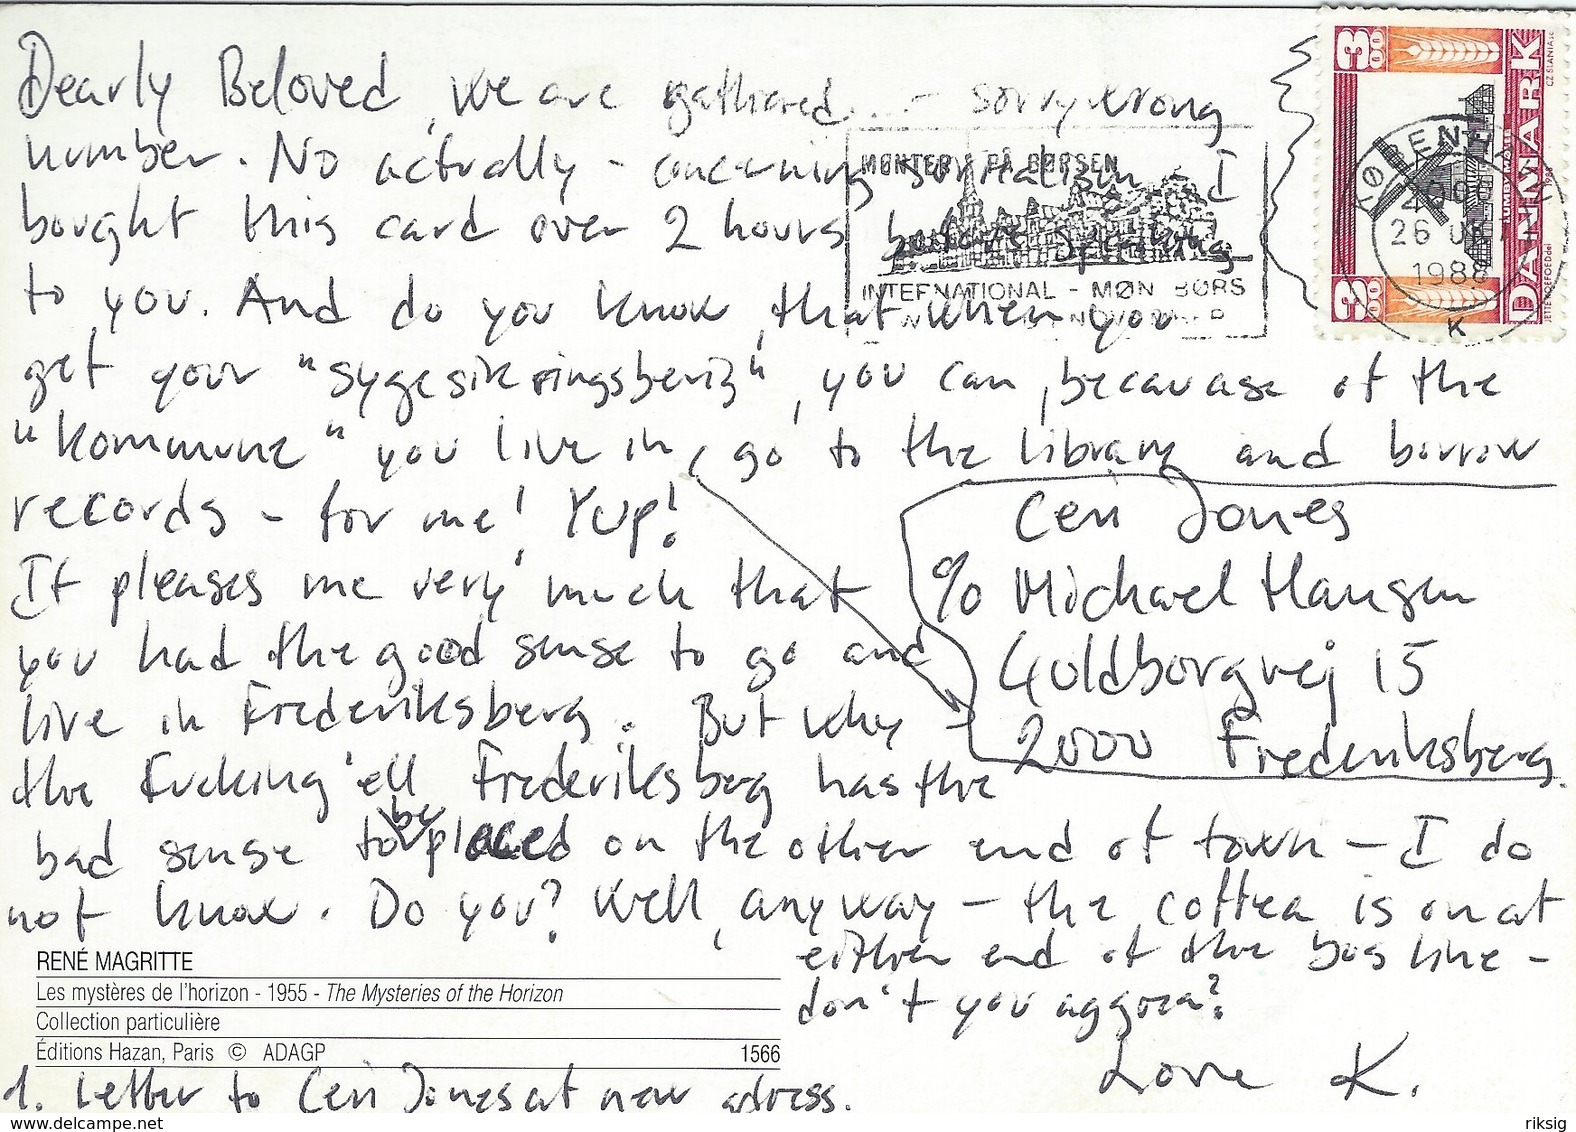 Dearly Beloved, we are gathered... - sorry wrong
number. No actually - concerning surrealism - I
bought this card over 2 hours before speaking
to you. And do you know, that when you
get your "sygesikringsbeviz", you can, becauase of the
"kommune" you live in, go to the library and borrow
records - for me! Yup!
It pleases me very much that
you had the good sense to go and
live in Frederiksberg. But why -
the Fucking 'ell Frederiksberg has the
bad sense to be placed on the other end of town - I do
not know. Do you? Well, anyway - the coffea is on at
either end of the bus line -
don't you aggrea?
Love K.
1. Letter to Ceri Jones at new adress.
Ceri Jones
c/o Michael Hansen
Guldborgvej 15
2000 Frederiksberg.
RENÉ MAGRITTE
Les mystères de l'horizon - 1955 - The Mysteries of the Horizon
Collection particulière
Éditions Hazan, Paris © ADAGP 1566
MØNTER PÅ BØRSEN
INTERNATIONAL - MØNTBØRS
KØBENHAVN
26 OKT
1988
K
3 00
3 00
DANMARK
LUMBY MØLLE
CZ SLANIA sc
www.delcampe.net
riksig